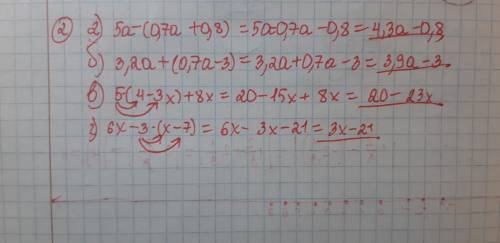 ② а) 5а-(0,7а+0,8)=5а-0,7а-0,8=4,3а-0,8
б) 3,2а+(0,7а-3)=3,2а+0,7а-3=3,9а-3
в) 5·(4-3x)+8x=20-15x+8x=20-23x
г) 6x-3·(x-7)=6x-3x-21=3x-21